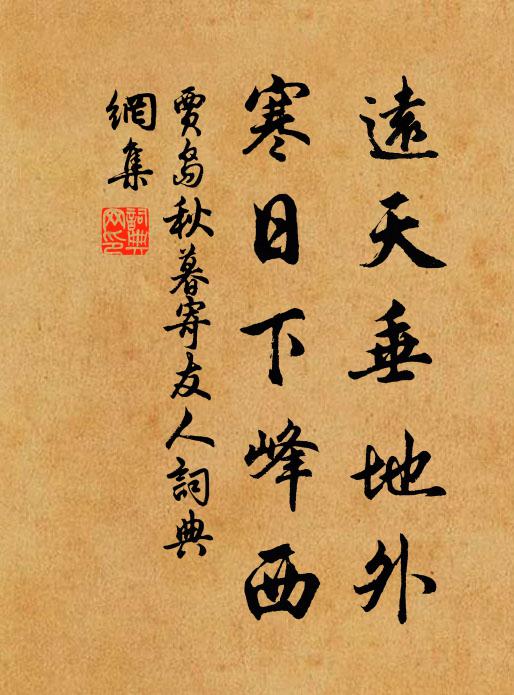 遠天垂地外
寒日下峰西
賈島秋暮寄友人詞典
網集
詞典
网印